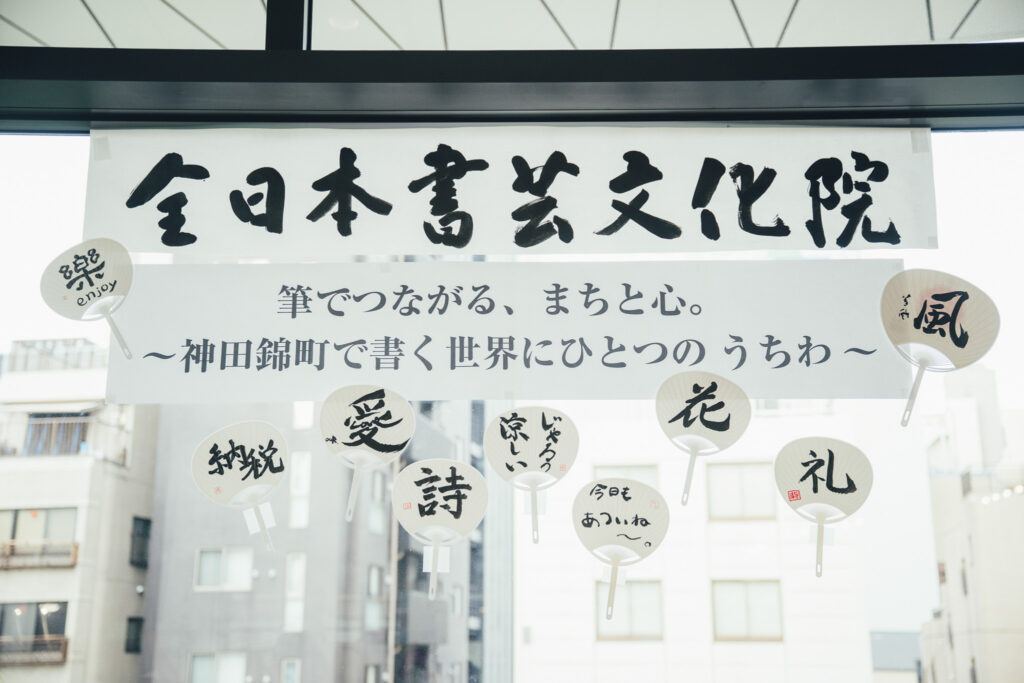 全日本書芸文化院
筆でつながる、まちと心。
～神田錦町で書く世界にひとつの うちわ～
樂
enjoy
風
納税
愛
詩
涼しい
花
今日も
あついね
～。
礼